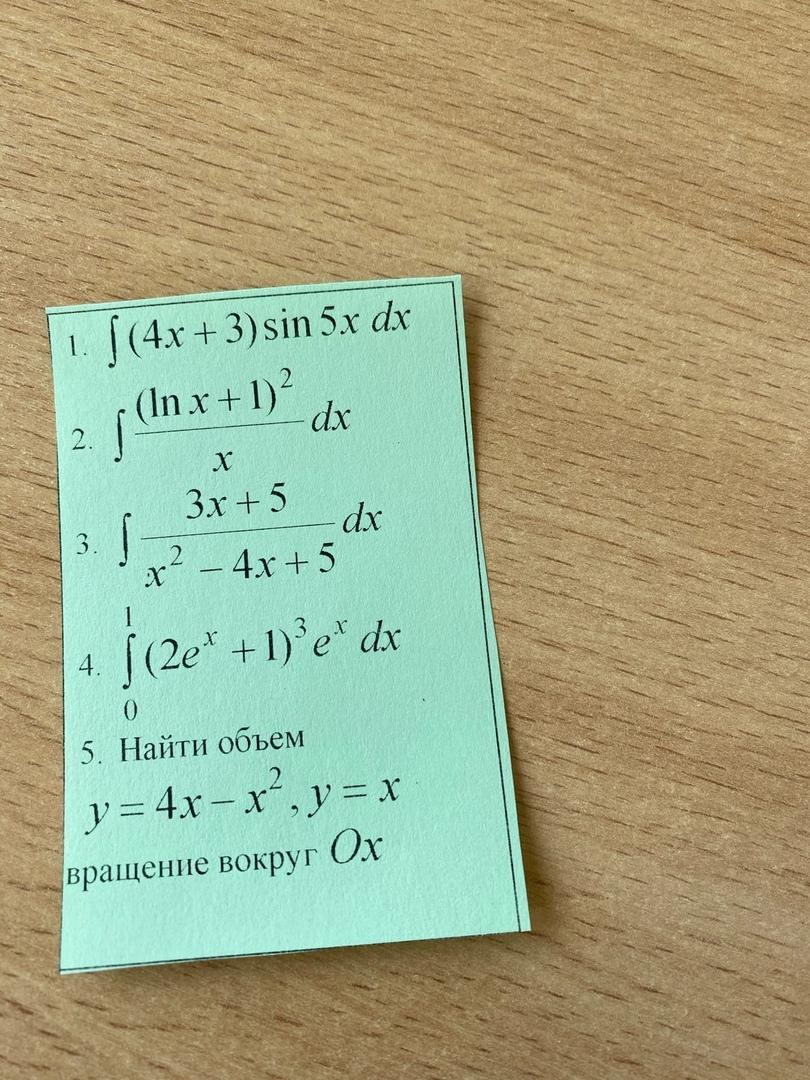 1. ∫(4x + 3) sin 5x dx
2. ∫ (ln x + 1)² / x dx
3. ∫ (3x + 5) / (x² − 4x + 5) dx
4. ∫₀¹ (2eˣ + 1)³ eˣ dx
5. Найти объем
y = 4x − x², y = x
вращение вокруг Ox